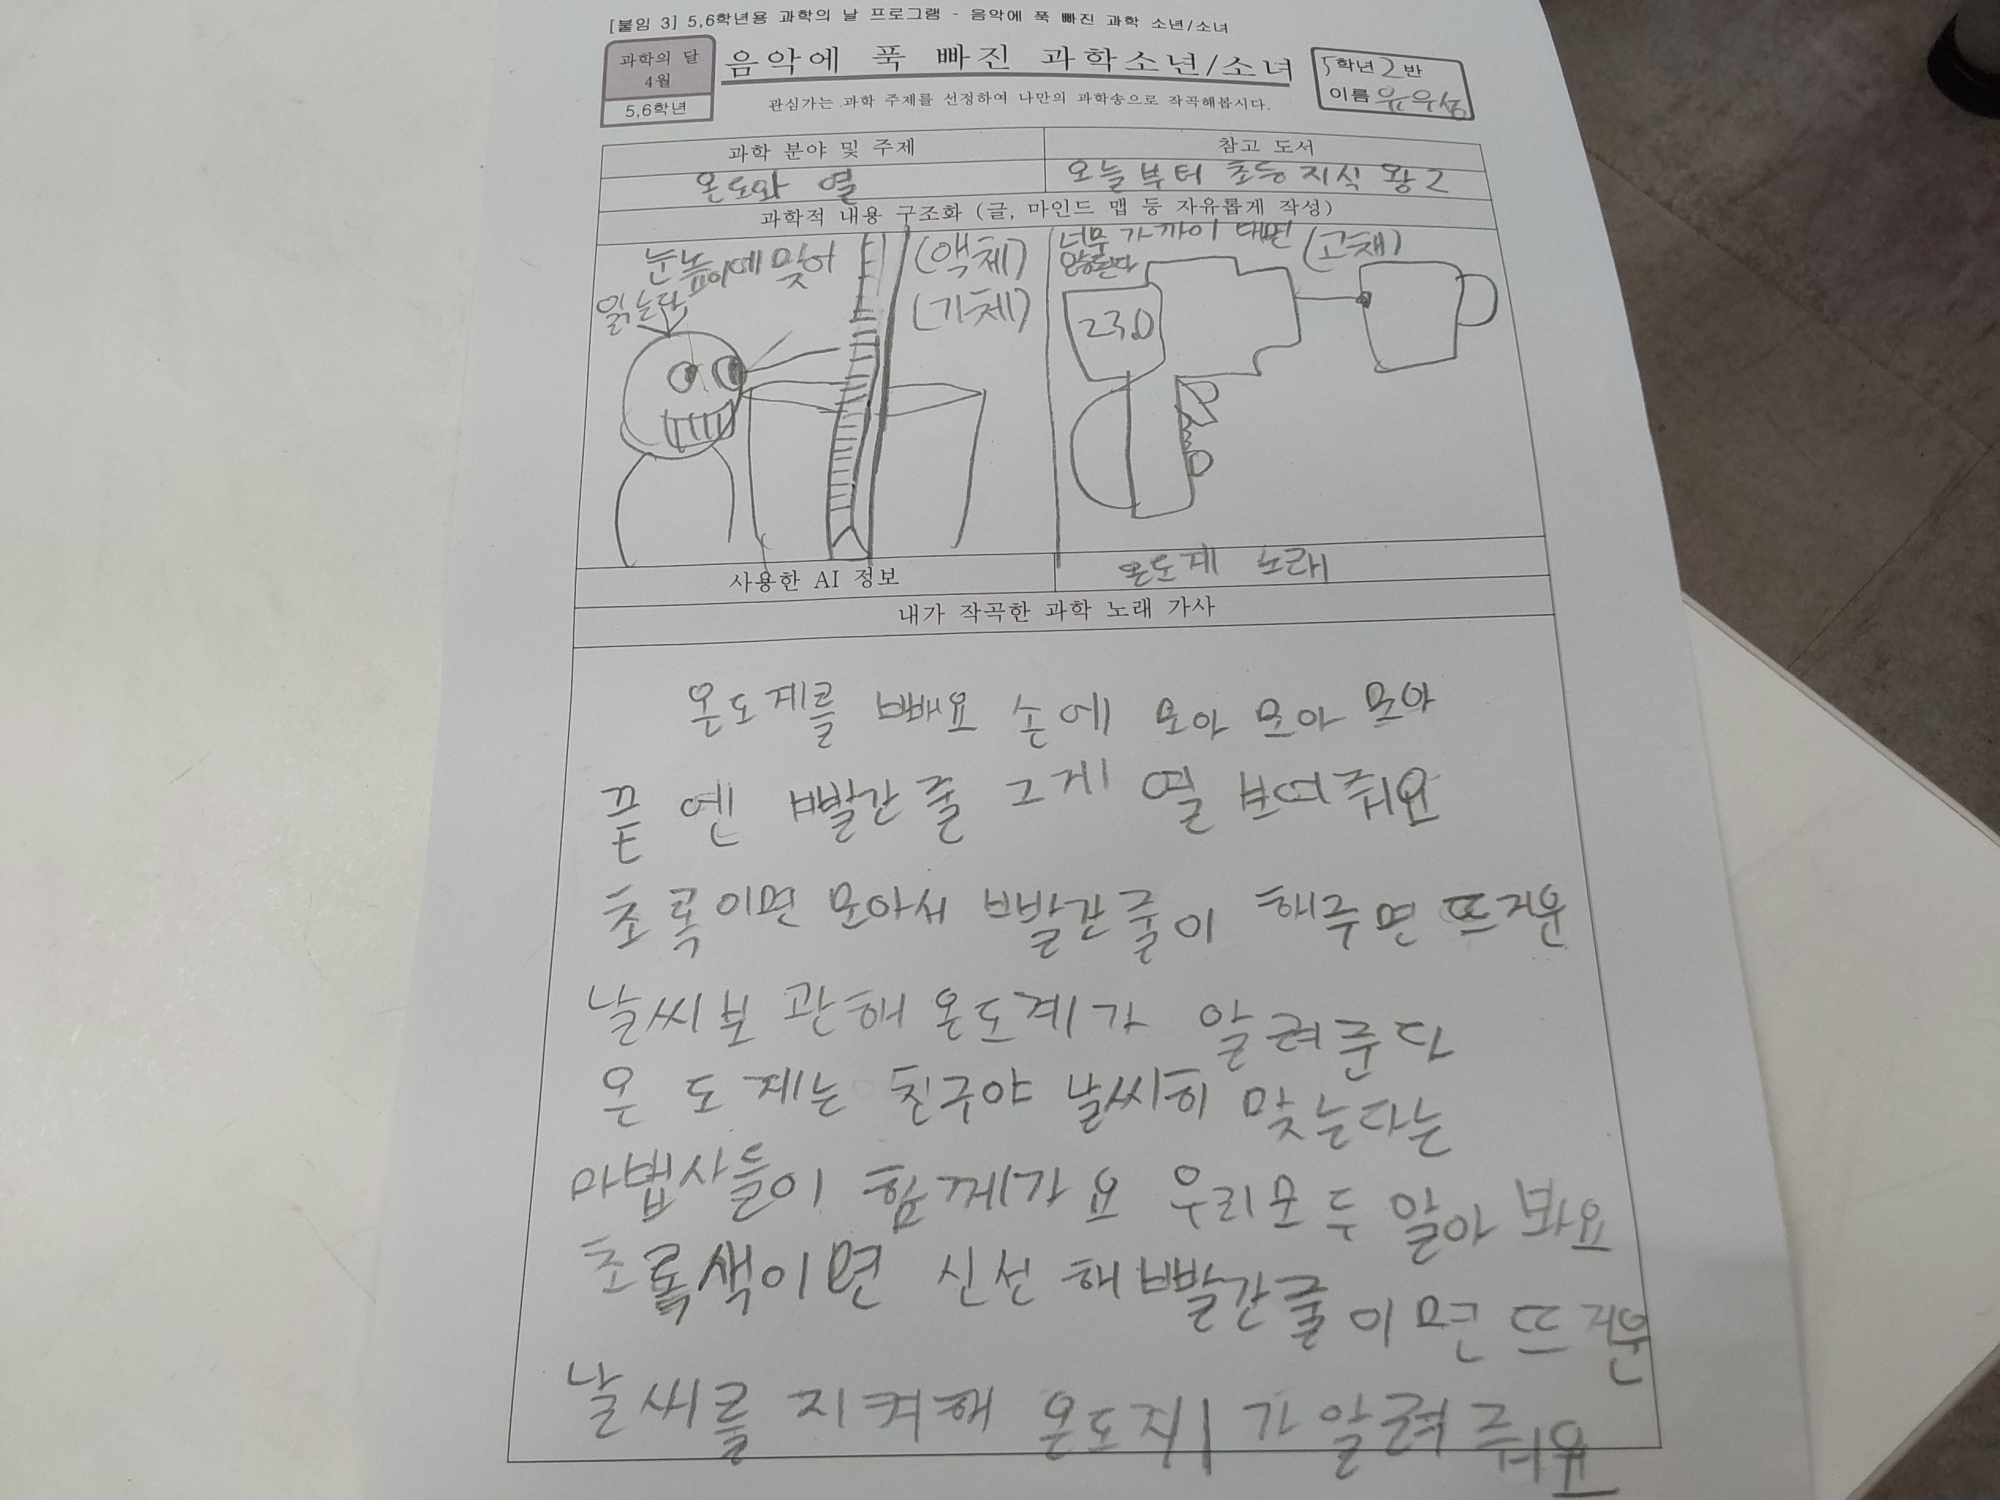 [붙임 3] 5,6학년용 과학의 날 프로그램 - 음악에 푹 빠진 과학 소년/소녀
과학의 달
4월
5,6학년
음악에 푹 빠진 과학소년/소녀
관심가는 과학 주제를 선정하여 나만의 과학송으로 작곡해봅시다.
5학년 2반
이름 유우성
과학 분야 및 주제
참고 도서
온도와 열
오늘부터 초등 지식 왕 2
과학적 내용 구조화 (글, 마인드 맵 등 자유롭게 작성)
눈높이에 맞어
읽는다
(액체)
(기체)
너무 가까이 대면
안된다
(고체)
23.0
사용한 AI 정보
온도계 노래
내가 작곡한 과학 노래 가사
온도계를 빼요 손에 모아 모아 모아
끝 엔 빨간줄 그게 열 보여줘요
초록이면 모아서 빨간줄이 해주면 뜨거운
날씨보관해 온도계가 알려준다
온도계는 친구야 날씨히 맞는다는
마법사들이 함께가요 우리모두 알아 봐요
초록색이면 신선해 빨간줄이면 뜨거운
날씨를 지켜해 온도계가 알려줘요